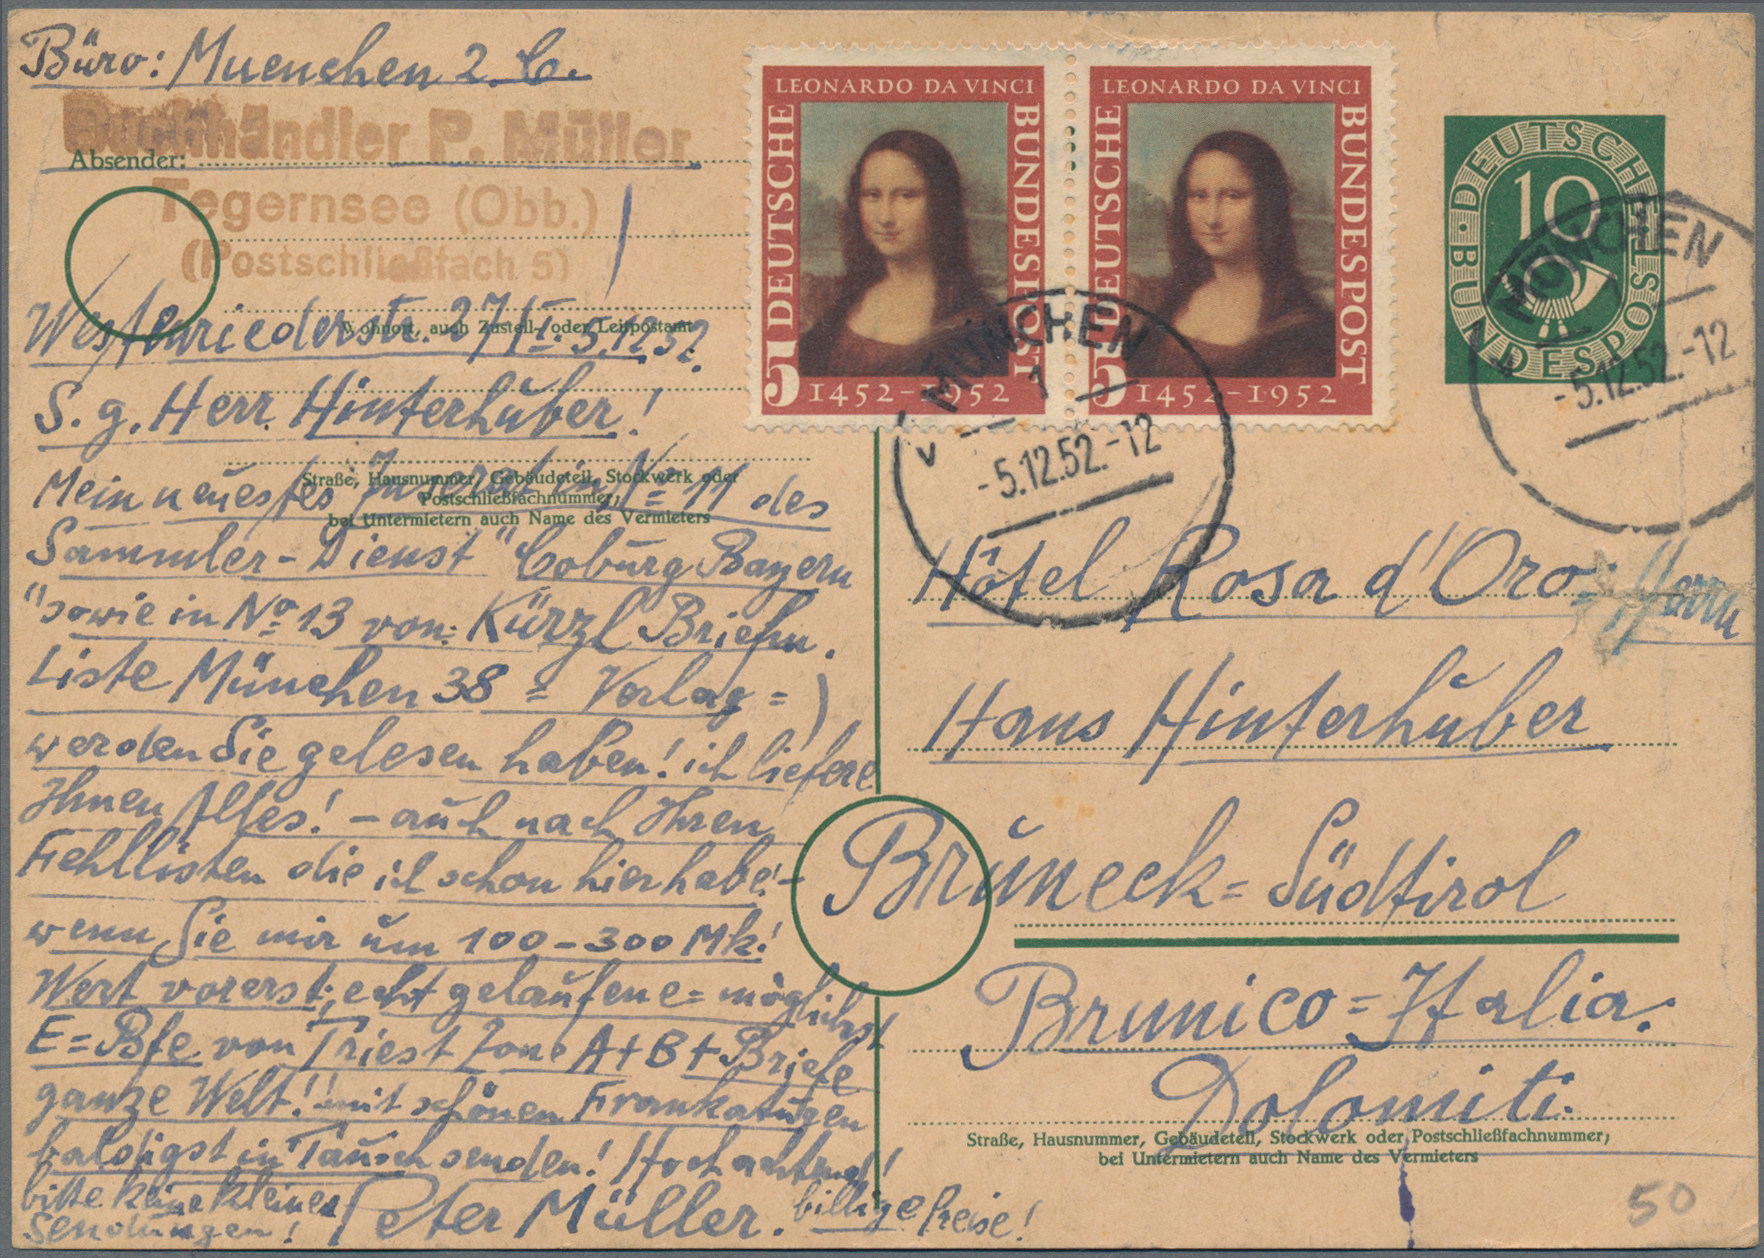 Büro: Muenchen 2. C.
Buchhändler P. Müller
Absender:
Tegernsee (Obb.)
(Postschließfach 5)
Westenriederstr. 27/I. 5.12.52.
Wohnort, auch Zustell- oder Leitpostamt
S. g. Herr Hinterhuber!
Mein neuestes Inserat in No 11 des
Straße, Hausnummer, Gebäudeteil, Stockwerk oder
Postschließfachnummer;
bei Untermietern auch Name des Vermieters
Sammler-Dienst" Coburg Bayern
"sowie in No 13 von: Kürzl Briefm.
Liste München 38 = Verlag =)
werden Sie gelesen haben! ich liefere
Ihnen Alles! – auch nach Ihren
Fehllisten die ich schon hier habe! –
wenn Sie mir um 100–300 Mk!
Wert vorerst; echt gelaufene = möglichst
E=Bfe von Triest Zone A+B+Briefe
ganze Welt! mit schönen Frankaturen
baldigst in Tausch senden! Hochachtend!
bitte keine kleinen
Sendungen! Peter Müller. billige Preise!
LEONARDO DA VINCI
DEUTSCHE
BUNDESPOST
5 1452-1952
LEONARDO DA VINCI
DEUTSCHE
BUNDESPOST
5 1452-1952
MÜNCHEN
1
-5.12.52.-12
v
DEUTSCHE
10
BUNDESPOST
MÜNCHEN
1
-5.12.52.-12
Hôtel Rosa d'Oro: Herrn
Hans Hinterhuber
Bruneck = Südtirol
Brunico = Italia.
Dolomiti.
Straße, Hausnummer, Gebäudeteil, Stockwerk oder Postschließfachnummer;
bei Untermietern auch Name des Vermieters
50